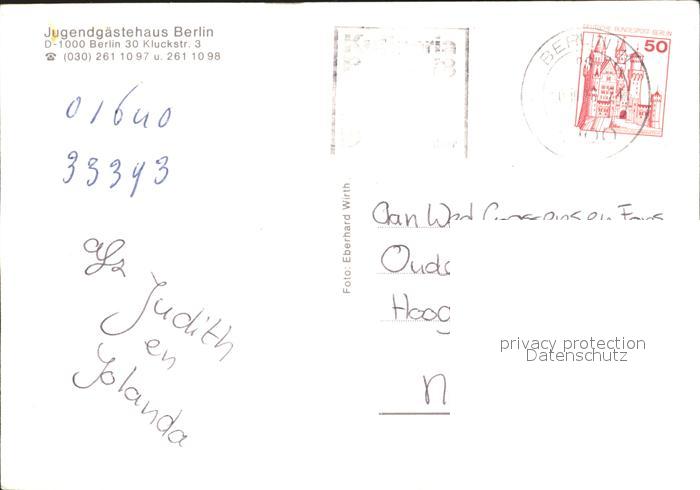 Jugendgästehaus Berlin
D-1000 Berlin 30 Kluckstr. 3
☎ (030) 261 10 97 u. 261 10 98
DEUTSCHE BUNDESPOST BERLIN
50
BERLIN
01640
33343
Foto: Eberhard Wirth
Aan
Oude
Hoog
N
afz
Judith
en
Jolanda
privacy protection
Datenschutz